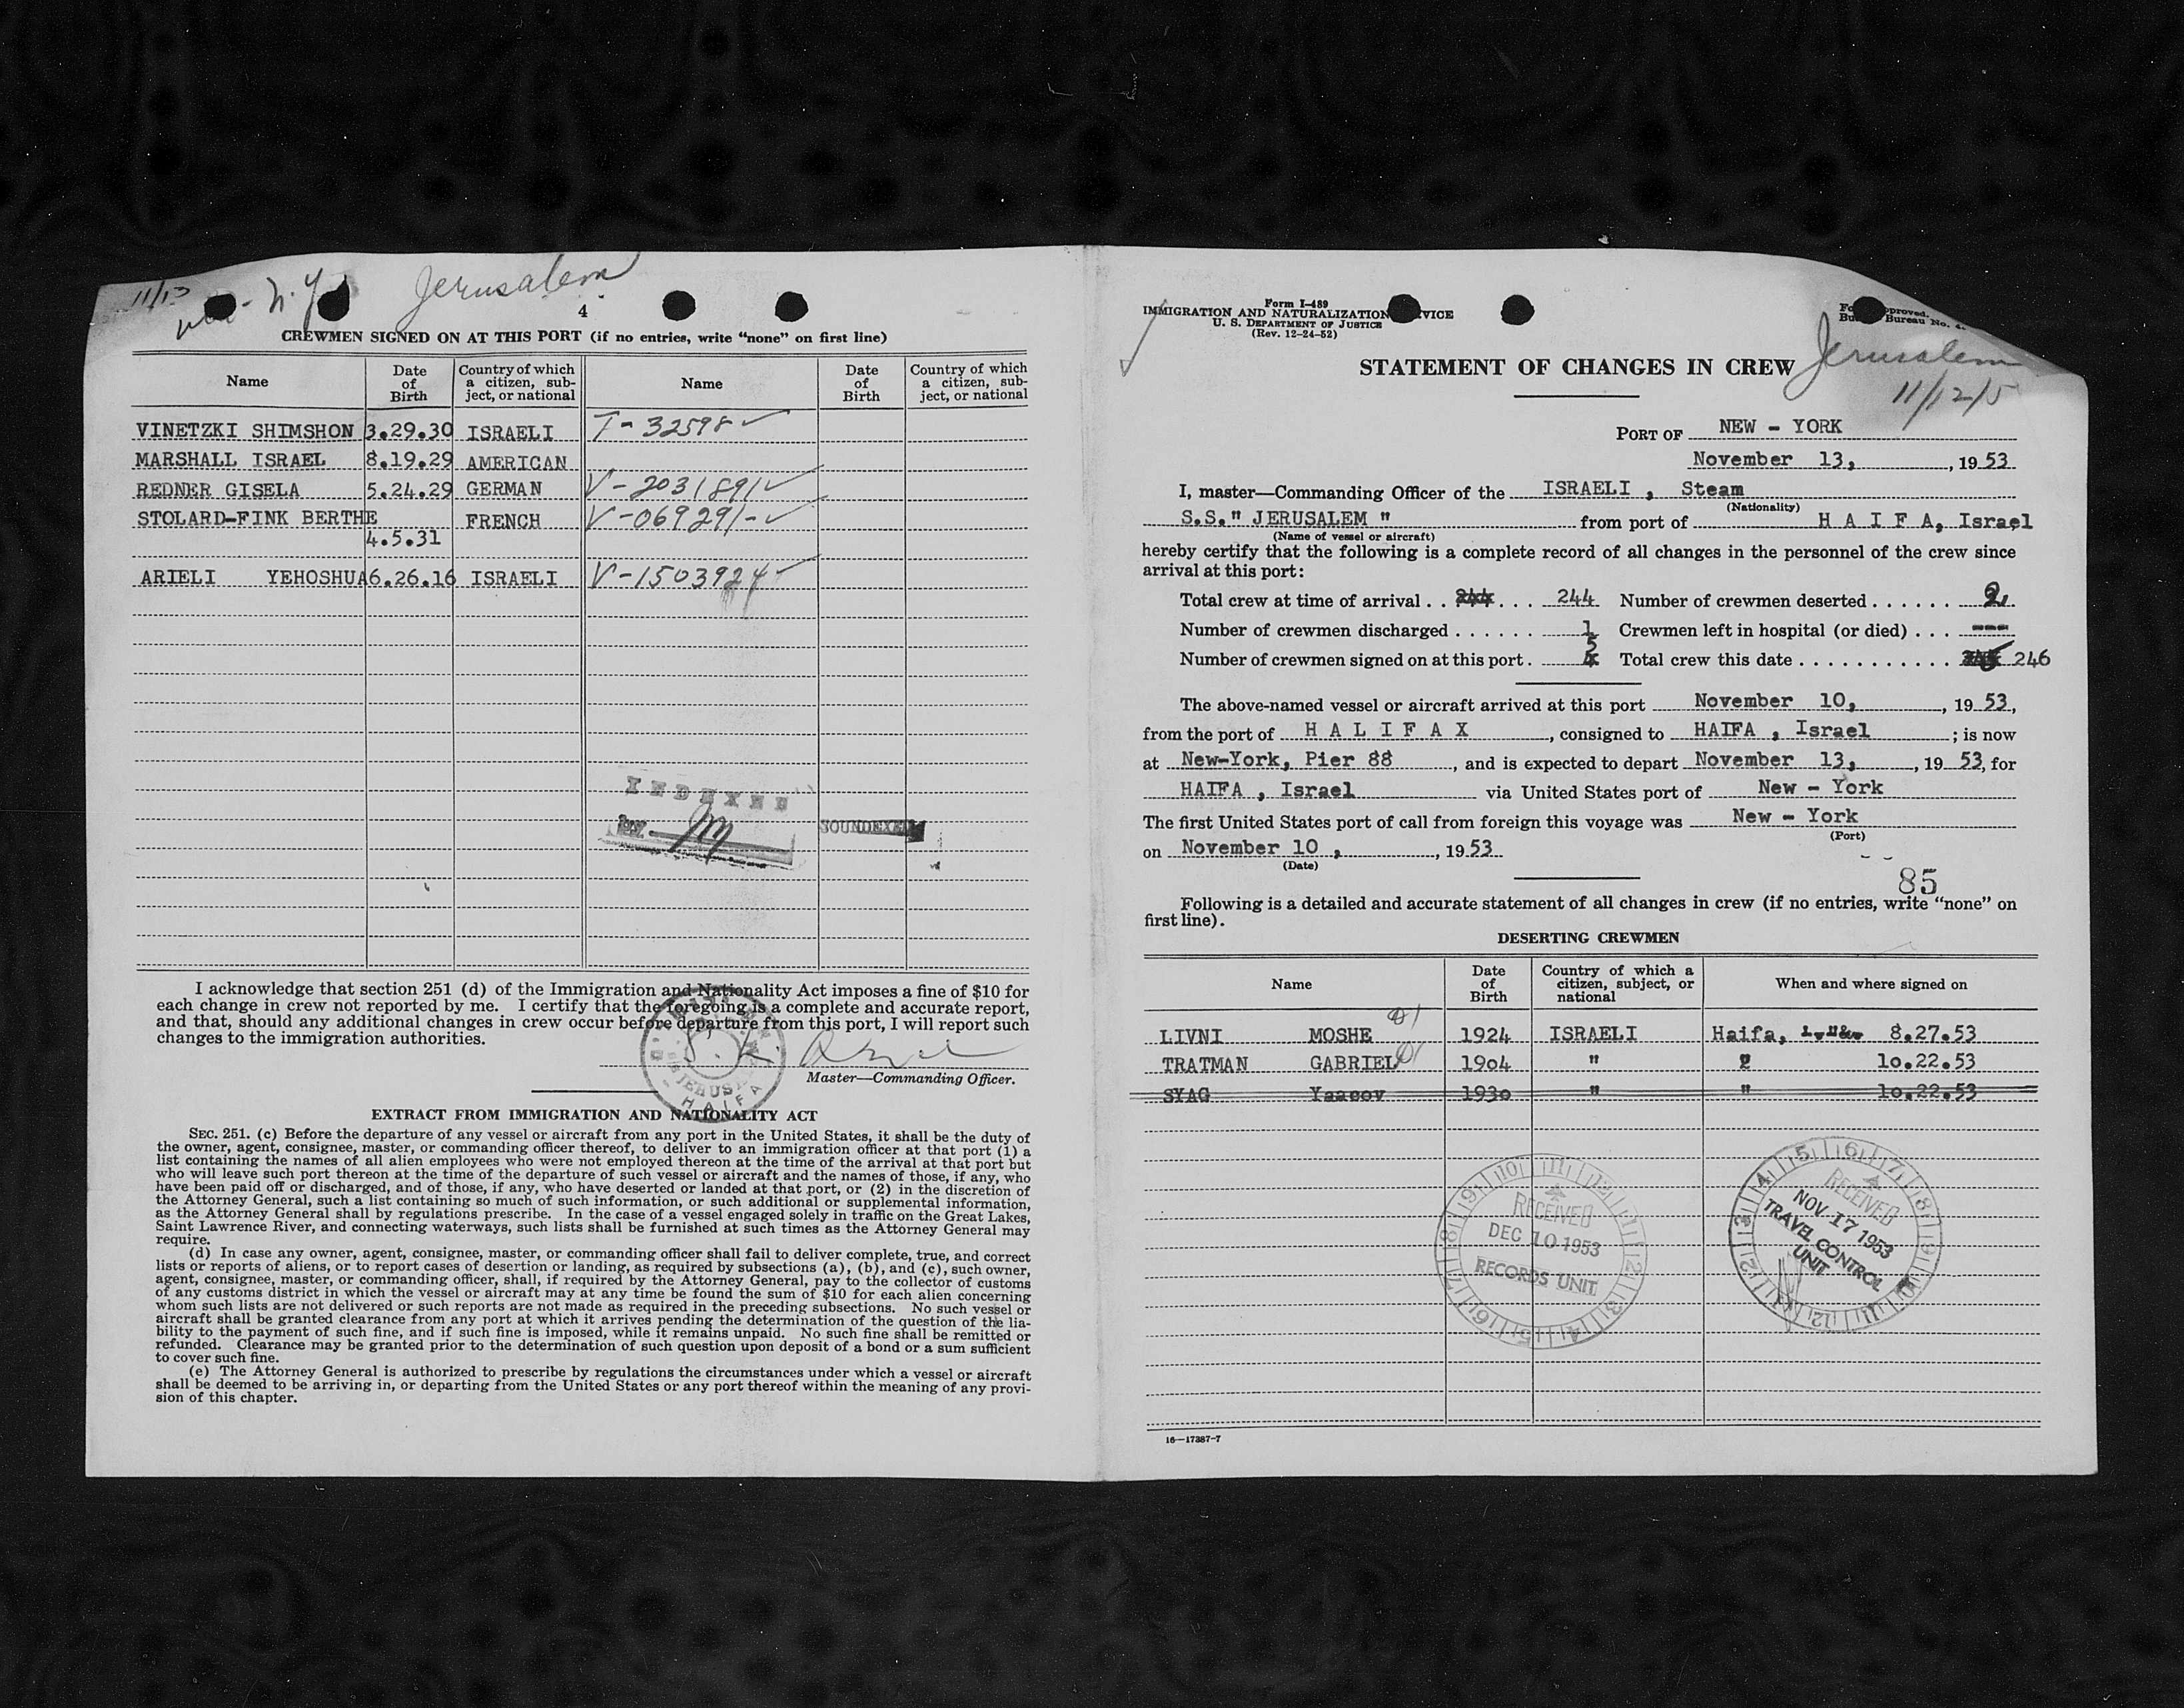 11/13
N.Y.
Jerusalem
4
CREWMEN SIGNED ON AT THIS PORT (if no entries, write “none” on first line)
Name Date of Birth Country of which a citizen, sub-ject, or national Name Date of Birth Country of which a citizen, sub-ject, or national
VINETZKI SHIMSHON 3.29.30 ISRAELI T-32598
MARSHALL ISRAEL 8.19.29 AMERICAN
REDNER GISELA 5.24.29 GERMAN V-2031891
STOLARD-FINK BERTHE FRENCH V-069291-
4.5.31
ARIELI YEHOSHUA 6.26.16 ISRAELI V-1503924
INDEXED
SOUNDEXED
I acknowledge that section 251 (d) of the Immigration and Nationality Act imposes a fine of $10 for
each change in crew not reported by me. I certify that the foregoing is a complete and accurate report,
and that, should any additional changes in crew occur before departure from this port, I will report such
changes to the immigration authorities.
JERUS
HAIFA
Master—Commanding Officer.
EXTRACT FROM IMMIGRATION AND NATIONALITY ACT
SEC. 251. (c) Before the departure of any vessel or aircraft from any port in the United States, it shall be the duty of
the owner, agent, consignee, master, or commanding officer thereof, to deliver to an immigration officer at that port (1) a
list containing the names of all alien employees who were not employed thereon at the time of the arrival at that port but
who will leave such port thereon at the time of the departure of such vessel or aircraft and the names of those, if any, who
have been paid off or discharged, and of those, if any, who have deserted or landed at that port, or (2) in the discretion of
the Attorney General, such a list containing so much of such information, or such additional or supplemental information,
as the Attorney General shall by regulations prescribe. In the case of a vessel engaged solely in traffic on the Great Lakes,
Saint Lawrence River, and connecting waterways, such lists shall be furnished at such times as the Attorney General may
require.
(d) In case any owner, agent, consignee, master, or commanding officer shall fail to deliver complete, true, and correct
lists or reports of aliens, or to report cases of desertion or landing, as required by subsections (a), (b), and (c), such owner,
agent, consignee, master, or commanding officer, shall, if required by the Attorney General, pay to the collector of customs
of any customs district in which the vessel or aircraft may at any time be found the sum of $10 for each alien concerning
whom such lists are not delivered or such reports are not made as required in the preceding subsections. No such vessel or
aircraft shall be granted clearance from any port at which it arrives pending the determination of the question of the lia-
bility to the payment of such fine, and if such fine is imposed, while it remains unpaid. No such fine shall be remitted or
refunded. Clearance may be granted prior to the determination of such question upon deposit of a bond or a sum sufficient
to cover such fine.
(e) The Attorney General is authorized to prescribe by regulations the circumstances under which a vessel or aircraft
shall be deemed to be arriving in, or departing from the United States or any port thereof within the meaning of any provi-
sion of this chapter.
Form I-489
IMMIGRATION AND NATURALIZATION VICE
U. S. DEPARTMENT OF JUSTICE
(Rev. 12-24-52)
proved.
Bureau No.
STATEMENT OF CHANGES IN CREW
Jerusalem
11/12/5
PORT OF NEW - YORK
November 13, , 19 53
I, master—Commanding Officer of the ISRAELI , Steam
(Nationality)
S.S." JERUSALEM " from port of H A I F A, Israel
(Name of vessel or aircraft)
hereby certify that the following is a complete record of all changes in the personnel of the crew since
arrival at this port:
Total crew at time of arrival . . 244 . . . 244 Number of crewmen deserted . . . . . . 2
Number of crewmen discharged . . . . . . 1 Crewmen left in hospital (or died) . . . ---
Number of crewmen signed on at this port . 5 Total crew this date . . . . . . . . . . . 246
The above-named vessel or aircraft arrived at this port November 10, , 19 53,
from the port of H A L I F A X , consigned to HAIFA , Israel ; is now
at New-York, Pier 88 , and is expected to depart November 13, , 19 53, for
HAIFA , Israel via United States port of New - York
The first United States port of call from foreign this voyage was New - York
(Port)
on November 10 , , 19 53
(Date)
85
Following is a detailed and accurate statement of all changes in crew (if no entries, write “none” on
first line).
DESERTING CREWMEN
Name Date of Birth Country of which a citizen, subject, or national When and where signed on
LIVNI MOSHE 1924 ISRAELI Haifa, 8.27.53
TRATMAN GABRIEL 1904 " " 10.22.53
SYAG Yaacov 1930 " " 10.22.53
RECEIVED
DEC 10 1953
RECORDS UNIT
RECEIVED
NOV 17 1953
TRAVEL CONTROL
UNIT
16—17387-7